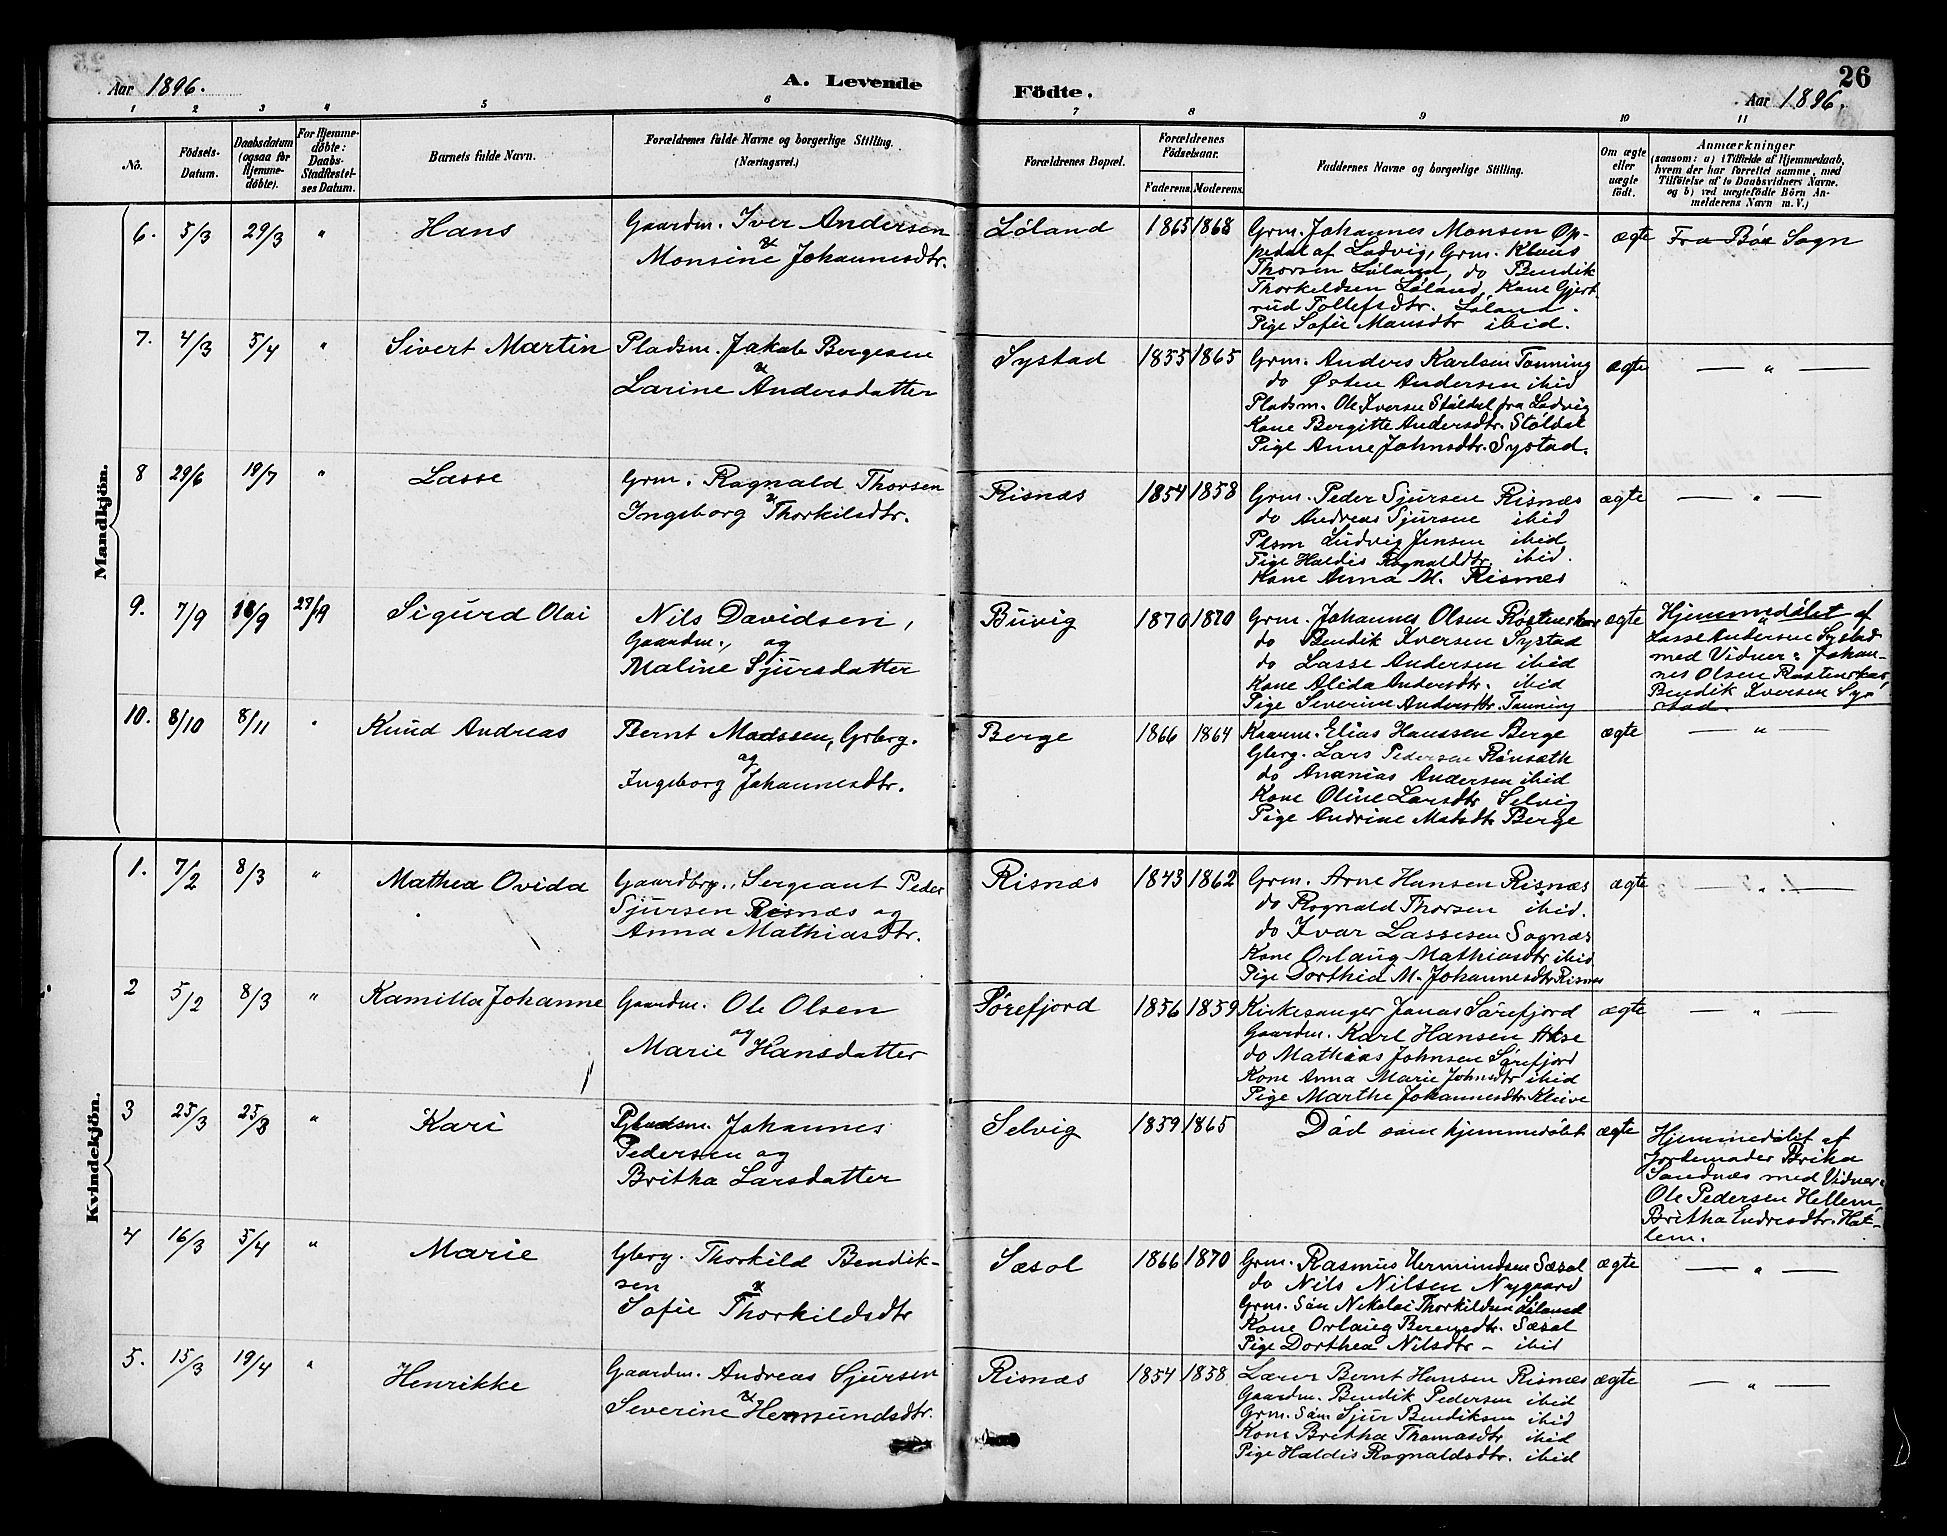 26
Aar 1896.
A. Levende
Födte.
Aar 1896.
1 2 3 4 5 6 7 8 9 10 11
No.
Födsels-
Datum.
Daabsdatum
(ogsaa for
Hjemme-
döbte).
For Hjemme-
döbte:
Daabs-
Stadfæstel-
ses Datum.
Barnets fulde Navn.
Forældrenes fulde Navne og borgerlige Stilling.
(Næringsvei.)
Forældrenes Bopæl.
Forældrenes
Födselsaar.
Faderens. Moderens.
Faddernes Navne og borgerlige Stilling.
Om ægte
eller
uægte
født.
Anmærkninger
(saasom: a) i Tilfælde af Hjemmedaab,
hvem der har forrettet samme, med
Tilföielse af to Daabsvidners Navne,
og b) ved uægtefödte Börn An-
melderens Navn m. V.)
Mandkjön.
6. 5/3 29/3 " Hans
Gaardm. Iver Andersen
& Monsine Johannesdtr.
Løland 1865 1868
Grm. Johannes Monsen Op-
pedal af Ladvig, Grm. Klaus
Thorsen Løland, do Bendik
Thorkeldsen Løland, Kone Gjert
rud Tollefsdtr. Løland.
Pige Sofie Mansdtr ibid.
ægte
Sogn
7. 4/3 5/4 " Sivert Martin
Pladsm. Jakob Bergesen
& Larine Andersdatter
Systad 1855 1865
Grm. Anders Karlsen Tonning
do Østen Andersen ibid
Pladsm. Ole Iversen Støldal fra Ladvig
Kone Bergitte Andersdtr. Støldal
Pige Anne Johnsdtr. Systad.
ægte — " —
8 29/6 19/7 " Lasse
Grm. Ragnald Thorsen
& Ingeborg Thorkilsdtr.
Risnæs 1854 1858
Grm. Peder Sjursen Risnæs
do Andreas Sjursen ibid
Plsm Ludvig Jensen ibid
Pige Haldis Ragnaldsdtr. ibid.
Kone Anna M. Risnæs
ægte — " —
9. 7/9 18/9 27/9 Sigurd Olai
Nils Davidsen,
Gaardm., og
Maline Sjursdatter
Buvig 1870 1870
Grm. Johannes Olsen
do Bendik Iversen Systad
do Lasse Andersen ibid
Kone Alida Andersdtr. ibid
Pige Severine Andersdtr. Tonning
ægte
Hjemmedøbt af
Lasse Andersen Systad
med Vidner: Johan-
nes Olsen
Bendik Iversen Sy-
stad.
10. 8/10 8/11 " Knud Andreas
Bernt Madssen, Grbrg.
og
Ingeborg Johannesdtr.
Berge 1866 1864
Kaarm. Elias Hanssen Berge
Gbrg. Lars Pedersen Rønsæth
do Ananias Andersen ibid
Kone Oline Larsdtr Selvig
Pige Andrine Matsdtr Berge
ægte — " —
Kvindekjön.
1. 7/2 8/3 " Mathea Ovida
Gaardbrg., Sergeant Peder
Sjursen Risnæs og
Anna Mathiasdtr.
Risnæs 1843 1862
Grm. Arne Hansen Risnæs
do Ragnald Thorsen ibid.
do Ivar Lassesen Sognæs
Kone Orlaug Mathiasdtr ibid
Pige Dorthea M. Johannesdtr Risnæs
ægte — " —
2 5/2 8/3 " Kamilla Johanne
Gaardm. Ole Olsen
og
Marie Hansdatter
Sørefjord 1856 1859
Kirkesanger Jonas Sørefjord
Gaardm. Karl Hansen
do Mathias Johnsen Sørefjord
Kone Anna Marie Johnsdtr ibid
Pige Marthe Johannesdtr Kleive
ægte — " —
3 25/3 25/3 " Kari
Pladsm. Johannes
Pedersen og
Britha Larsdatter
Selvig 1859 1865
Død som hjemmedøbt
ægte
Hjemmedøbt af
Jordemoder Brita
Sandnæs med Vidner:
Ole Pedersen Hellem,
Britha Endresdtr. Hat-
lem.
4 16/3 5/4 " Marie
Gbrg. Thorkild Bendik-
sen
& Sofie Thorkildsdtr
Sæsol 1866 1870
Grm. Rasmus Hermundsen Sæsol
do Nils Nilsen Nygaard
Grm. Søn Nikolai Thorkildsen Løland
Kone Orlaug Berensdtr. Sæsol
Pige Dorthea Nilsdtr - ibid
ægte — " —
5. 15/3 19/4 " Henrikke
Gaardm. Andreas Sjursen
& Severine Hermundsdtr.
Risnæs 1854 1858
Lærer Bernt Hansen Risnæs
Gaardm. Bendik Pedersen ibid
Grm. Søn Sjur Bendiksen ibid
Kone Britha Thomasdtr ibid
Pige Haldis Ragnaldsdtr. ibid
ægte — " —